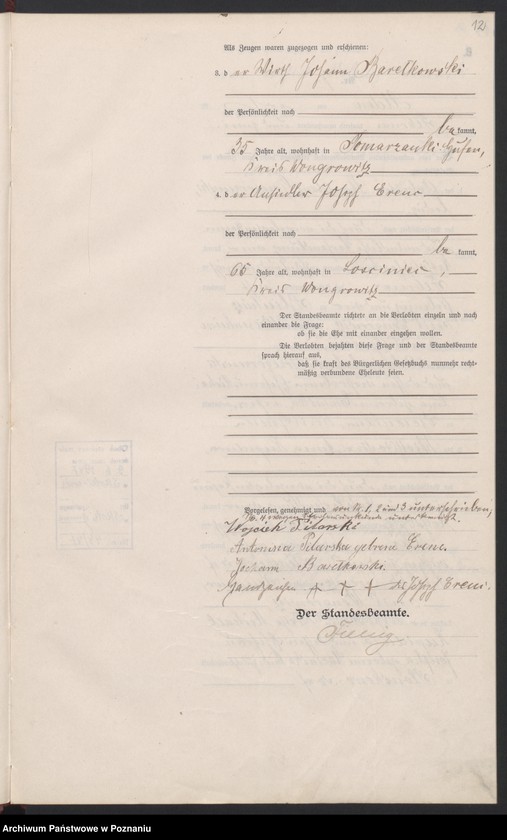 12
Als Zeugen waren zugezogen und erschienen:
3. d er Wirth Johann Barelkowski
der Persönlichkeit nach
be kannt,
35 Jahre alt, wohnhaft in Pomarzanki Hufen,
Kreis Wongrowitz
4. d er Ansiedler Joseph Erenc
der Persönlichkeit nach
be kannt,
65 Jahre alt, wohnhaft in Losciniec,
Kreis Wongrowitz
Der Standesbeamte richtete an die Verlobten einzeln und nach
einander die Frage:
ob sie die Ehe mit einander eingehen wollen.
Die Verlobten bejahten diese Frage und der Standesbeamte
sprach hierauf aus,
daß sie kraft des Bürgerlichen Gesetzbuchs nunmehr recht-
mäßig verbundene Eheleute seien.
Vorgelesen, genehmigt und von Nr. 1, 2 und 3 unterschrieben,
Nr. 4 wegen
Wojciek Pilarski
Antonina Pilarska geborne Erenc.
Johann Barelkowski.
Handzeichen + + + des Joseph Erenc.
Der Standesbeamte.